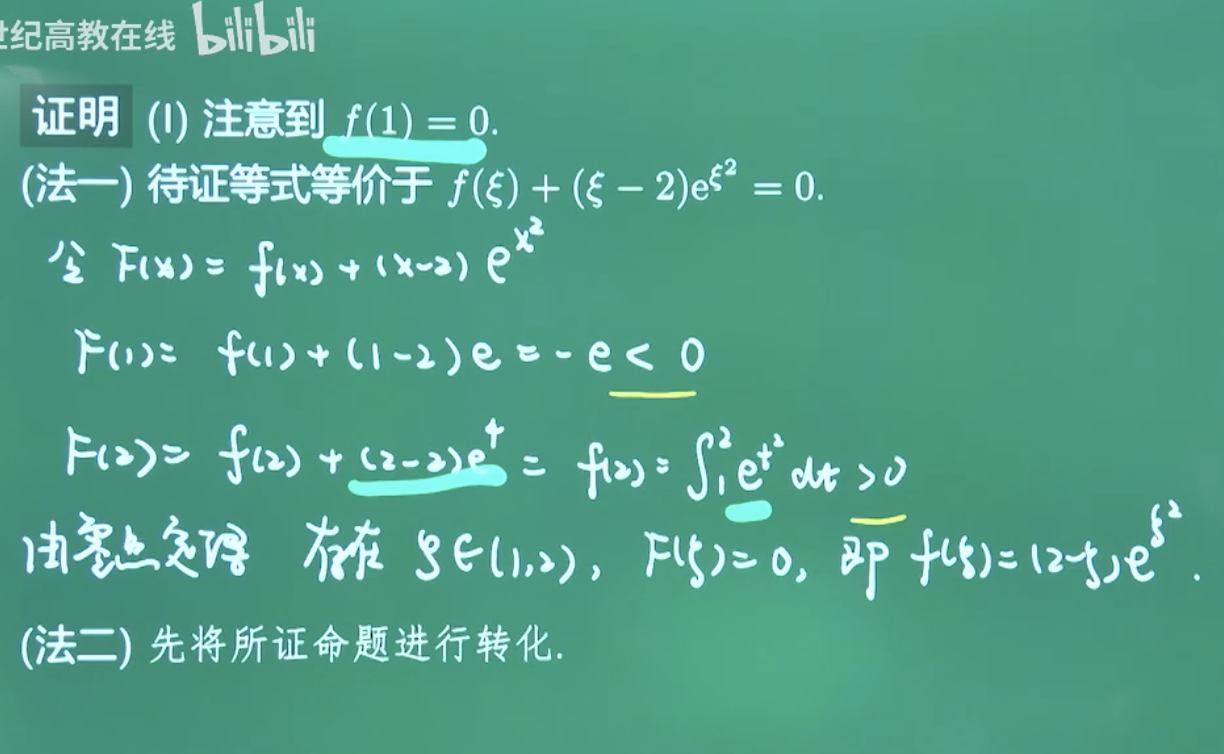 世纪高教在线 bilibili
证明 (I) 注意到 f(1) = 0.
(法一) 待证等式等价于 f(ξ) + (ξ − 2)e^{ξ²} = 0.
令 F(x) = f(x) + (x-2) e^{x²}
F(1) = f(1) + (1-2) e = -e < 0
F(2) = f(2) + (2-2)e⁴ = f(2) = ∫₁² e^{t²} dt > 0
由零点定理 存在 ξ∈(1,2), F(ξ) = 0, 即 f(ξ) = (2-ξ)e^{ξ²}.
(法二) 先将所证命题进行转化.